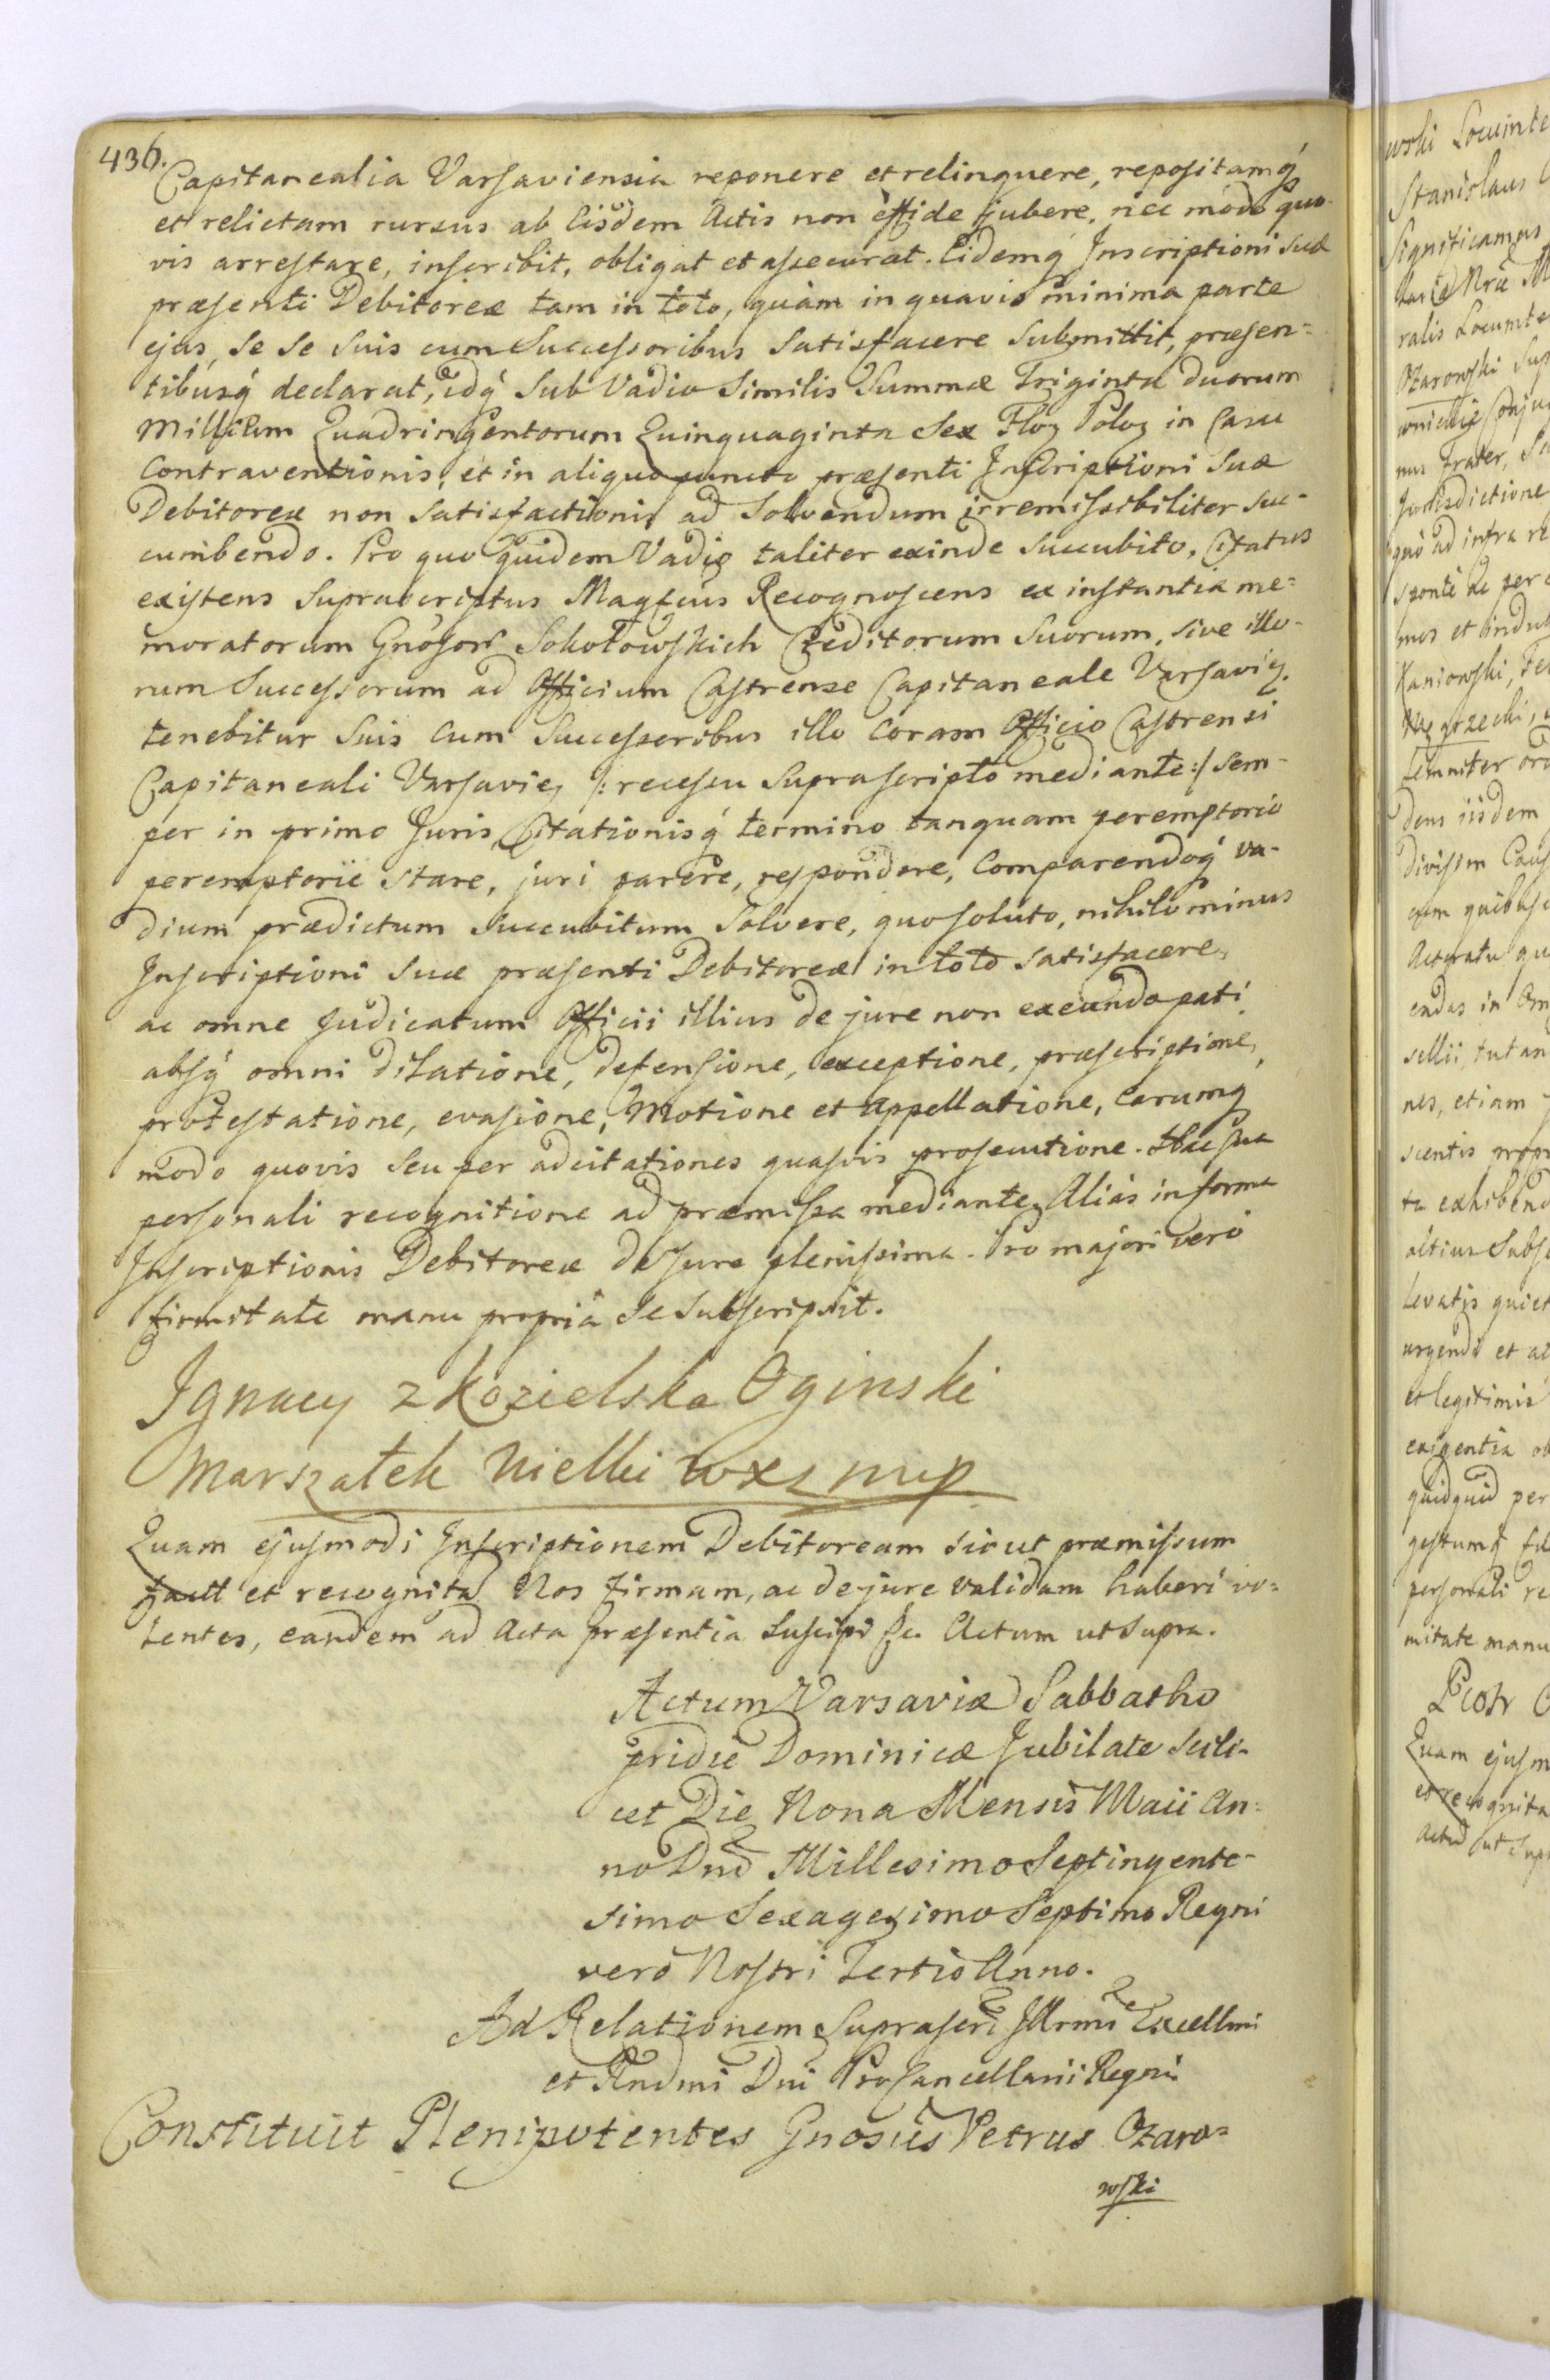 436.
Capitanealia Varsaviensia reponere et relinquere, repositamq́
et relictam rursus ab Eisdem Actis non jubere, nec modo quo-
vis arrestare, inscribit, obligat et assecurat. Eidemq́ Inscriptioni suæ
præsenti Debitoreæ tam in toto, quàm in quavis minima parte
ejus, se se suis cum Successoribus satisfacere submittit, præsen=
tibusq́ declarat, idq́ sub Vadio similis Summæ Triginta duorum
Millium Quadringentorum Quinquaginta Sex Floꝝ Poloꝝ in Casu
Contraventionis, et in aliquo puncto præsenti Inscriptioni suæ
Debitoreæ non satisfactionis ad solvendum irremissibiliter suc-
cumbendo. Pro quo quidem Vadio taliter exinde succubito, Citatus
existens suprascriptus Magfcus Recognoscens ex instantia me=
moratorum Gnosorꝝ Sokołowskich Creditorum suorum, sive illo-
rum Successorum ad Officium Castrense Capitaneale Varsavien
tenebitur suis cum Successoribus illo coram Officio Castrensi
Capitaneali Varsavien /: recessu suprascripto mediante :/ sem-
per in primo Juris, Citationisq́ termino tanquam peremptorio
peremptoriè stare, juri parere, respondere, Comparendoq́ va-
dium prædictum succubitum solvere, quo soluto, nihilominus
Inscriptioni suæ præsenti Debitoreæ in toto satisfacere,
ac omne judicatum Officii illius de jure non exeundo pati
absq́ omni dilatione, defensione, exceptione, præscriptione,
protestatione, evasione, Motione et Appellatione, earumq́
modo quovis seu per adcitationes quasvis prosecutione. Hac sua
personali recognitione ad præmissa mediante. Aliàs in forma
Inscriptionis Debitoreæ de jure plenissima. Pro majori verò
firmitate manu propria se subscripsit.
Ignacy z Kozielska Oginski
Marszałek Wielki WXL mp
Quam ejusmodi Inscriptionem Debitoream sicut præmissum
et recognita Nos firmam, ac de jure validam haberi vo=
lentes, eandem ad Acta præsentia suscipi &c. Actum ut supra.
Actum Varsaviæ Sabbatho
pridie Dominicæ Jubilate scili-
cet Die Nona Mensis Maii An=
no Dni Millesimo Septingente-
simo Sexagesimo Septimo Regni
verò Nostri Tertio Anno.
Ad Relationem suprascri Illrmi Excellmi
et Rndmi Dni Procancellarii Regni
Constituit Plenipotentes Gnosus Petrus Ozaro=
wski
wski Locumte
Stanislaus
Significamus
ralis Locumte
Ozarowski Sup
nus Frater,
Jurisdictione
quò ad infra re
sponte ac per
mos et indu
Kaniowski,
Węgrzecki,
lemniter ord
dens iisdem
divisim Caus
cum quibusc
Actoratu qu
endas in Om
sellii, tutan
nes, etiam
scentis propr
ta exhibend
altius subs
levatis quiet
urgendi et ac
et legitimis
exigentia ob
quidquid per
gestumq́
personali re
mitate manu
Piotr O
Quam ejusm
et recognita
Actu ut supr